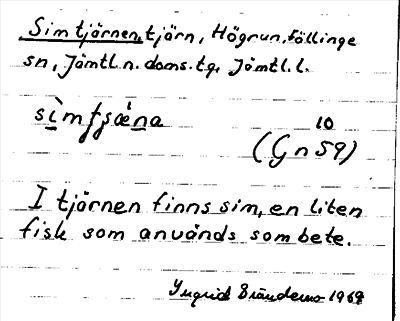 Simtjärnen, tjärn, Högrun, Föllinge
sn, Jämtl. n. doms. tg, Jämtl. l.
sìmfsǽna
10
(Gn 59)
I tjärnen finns sim, en liten
fisk som används som bete.
Yngrid 1969